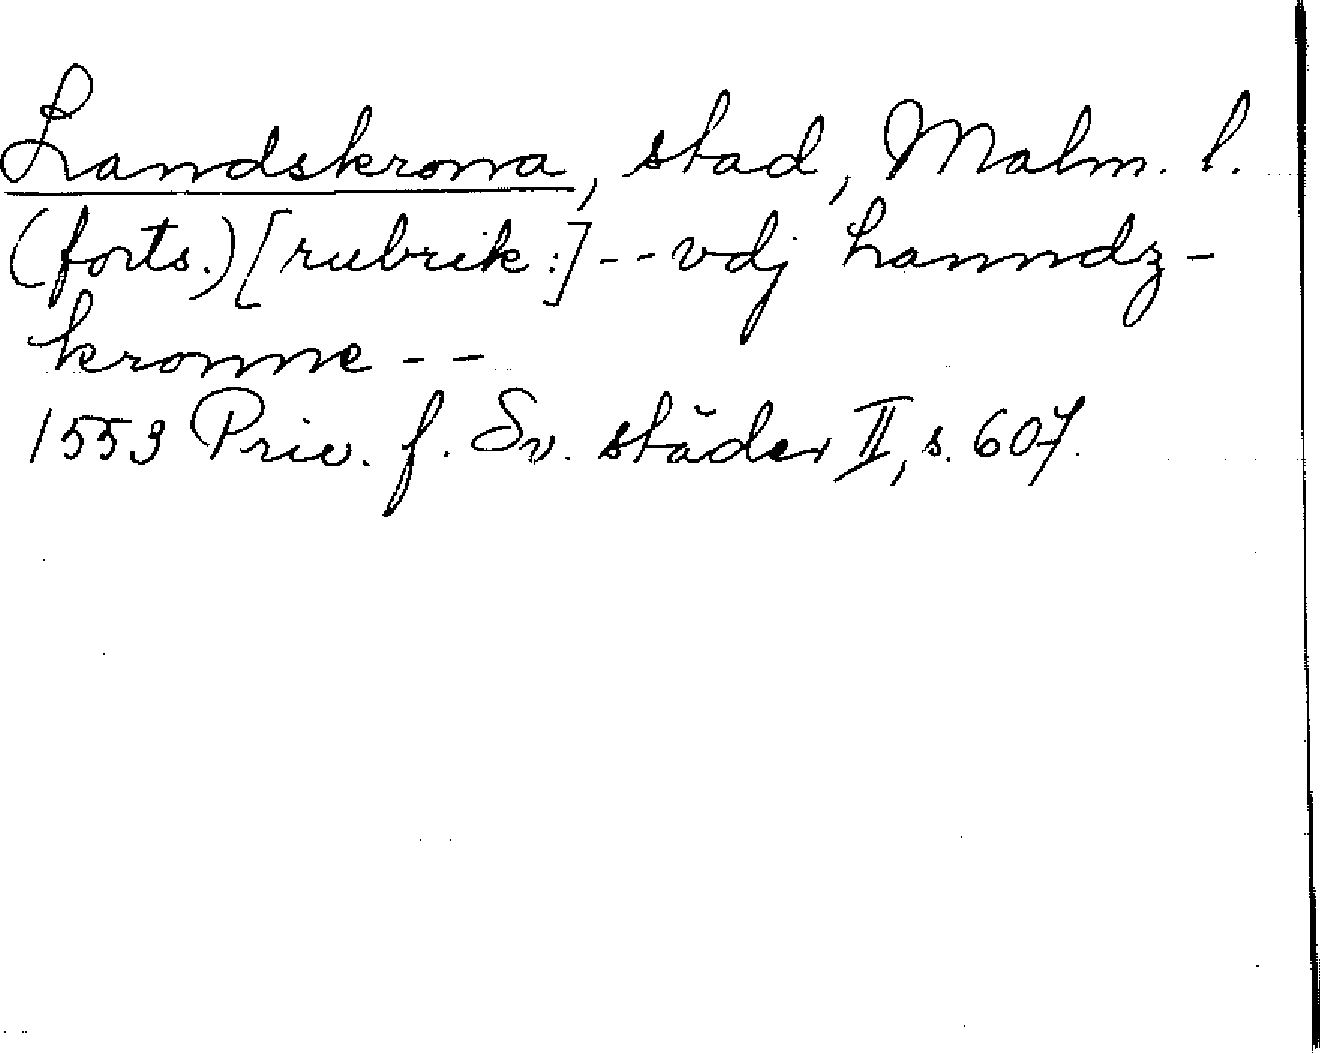 Landskrona, stad, Malm. l.
(forts.) [rubrik:] -- vdj Lanndz-
kronne --
1553 Priv. f. Sv. städer II, s. 607.